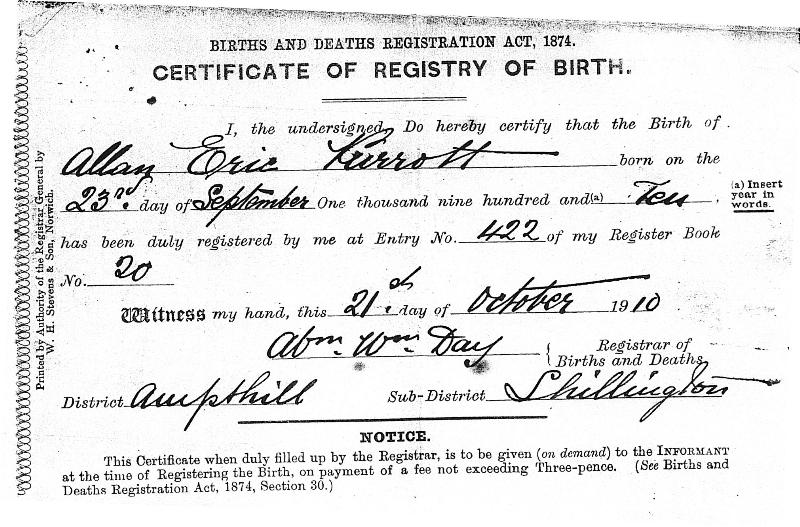 BIRTHS AND DEATHS REGISTRATION ACT, 1874.
CERTIFICATE OF REGISTRY OF BIRTH.
I, the undersigned, Do hereby certify that the Birth of
Allan Eric Kurrott born on the
23rd day of September One thousand nine hundred and(a) Ten,
(a) Insert
year in
words.
has been duly registered by me at Entry No. 422 of my Register Book
No. 20
Witness my hand, this 21st day of October 1910
Abm. Wm Day
Registrar of
Births and Deaths
District Ampthill Sub-District Shillington
NOTICE.
This Certificate when duly filled up by the Registrar, is to be given (on demand) to the INFORMANT
at the time of Registering the Birth, on payment of a fee not exceeding Three-pence. (See Births and
Deaths Registration Act, 1874, Section 30.)
Printed by Authority of the Registrar General by
W. H. Stevens & Son, Norwich.